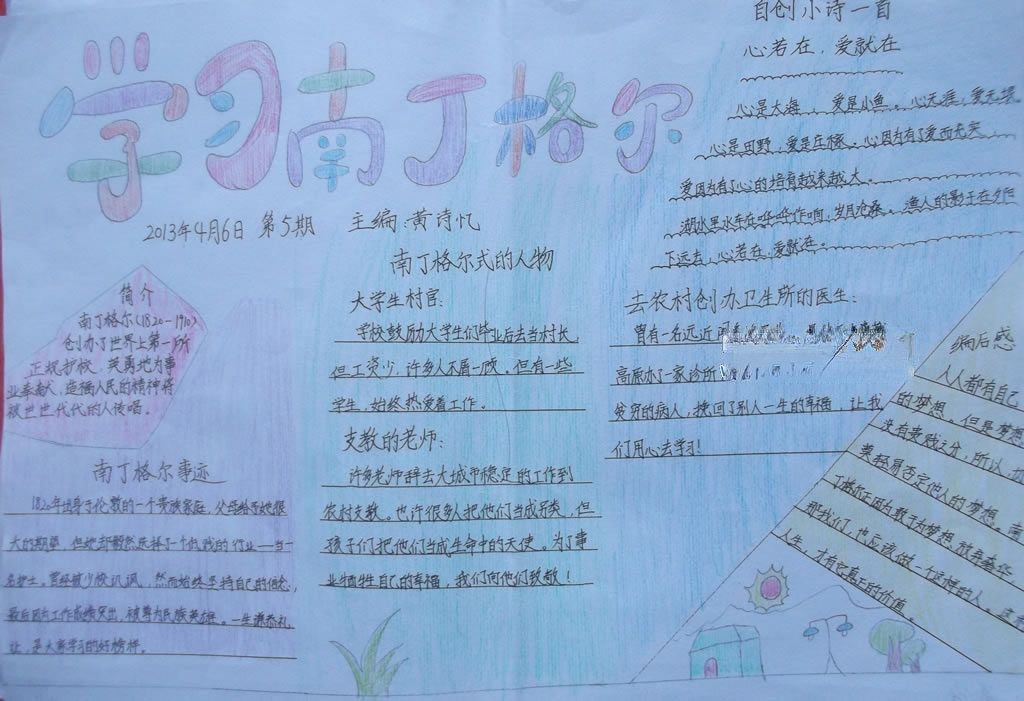 学习南丁格尔
2013年4月6日 第5期 主编:黄诗忆
简介
南丁格尔(1820-1910)
创办了世界上第一所
正规护校。英勇地为事
业奉献、造福人民的精神将
被世世代代的人传唱。
南丁格尔事迹
1820年出身于伦敦的一个贵族家庭,父母给予她很
大的期望,但她却毅然选择了一个低贱的行业——当一
名护士。曾经被少校讥讽,然而始终坚持自己的信念,
最后因为工作成绩突出,被尊为民族英雄。一生谦恭礼
让,是大家学习的好榜样。
南丁格尔式的人物
大学生村官:
学校鼓励大学生们毕业后去当村长,
但工资少,许多人不屑一顾。但有一些
学生,始终热爱着工作。
支教的老师:
许多老师辞去大城市稳定的工作到
农村支教。也许很多人把他们当成另类,但
孩子们把他们当成生命中的天使。为了事
业牺牲自己的幸福,我们向他们致敬!
自创小诗一首
心若在,爱就在
心是大海,爱是小鱼。心无涯,爱无境
心是田野,爱是庄稼。心因为有了爱而充实
爱因为有了心的培育越来越大。
湖水里水车在哗哗作响,岁月沧桑。渔人的影子在夕阳
下远去,心若在,爱就在。
去农村创办卫生所的医生:
曾有一名远近
高原办了一家诊所
贫穷的病人,挽回了别人一生的幸福,让我
们用心去学习!
编后感
人人都有自己
的梦想,但是梦想
没有贵贱之分,所以,不
要轻易否定他人的梦想。南
丁格尔正因为敢于为梦想放弃奢华,
那我们,也应该做一个这样的人。
人生,才有它真正的价值。